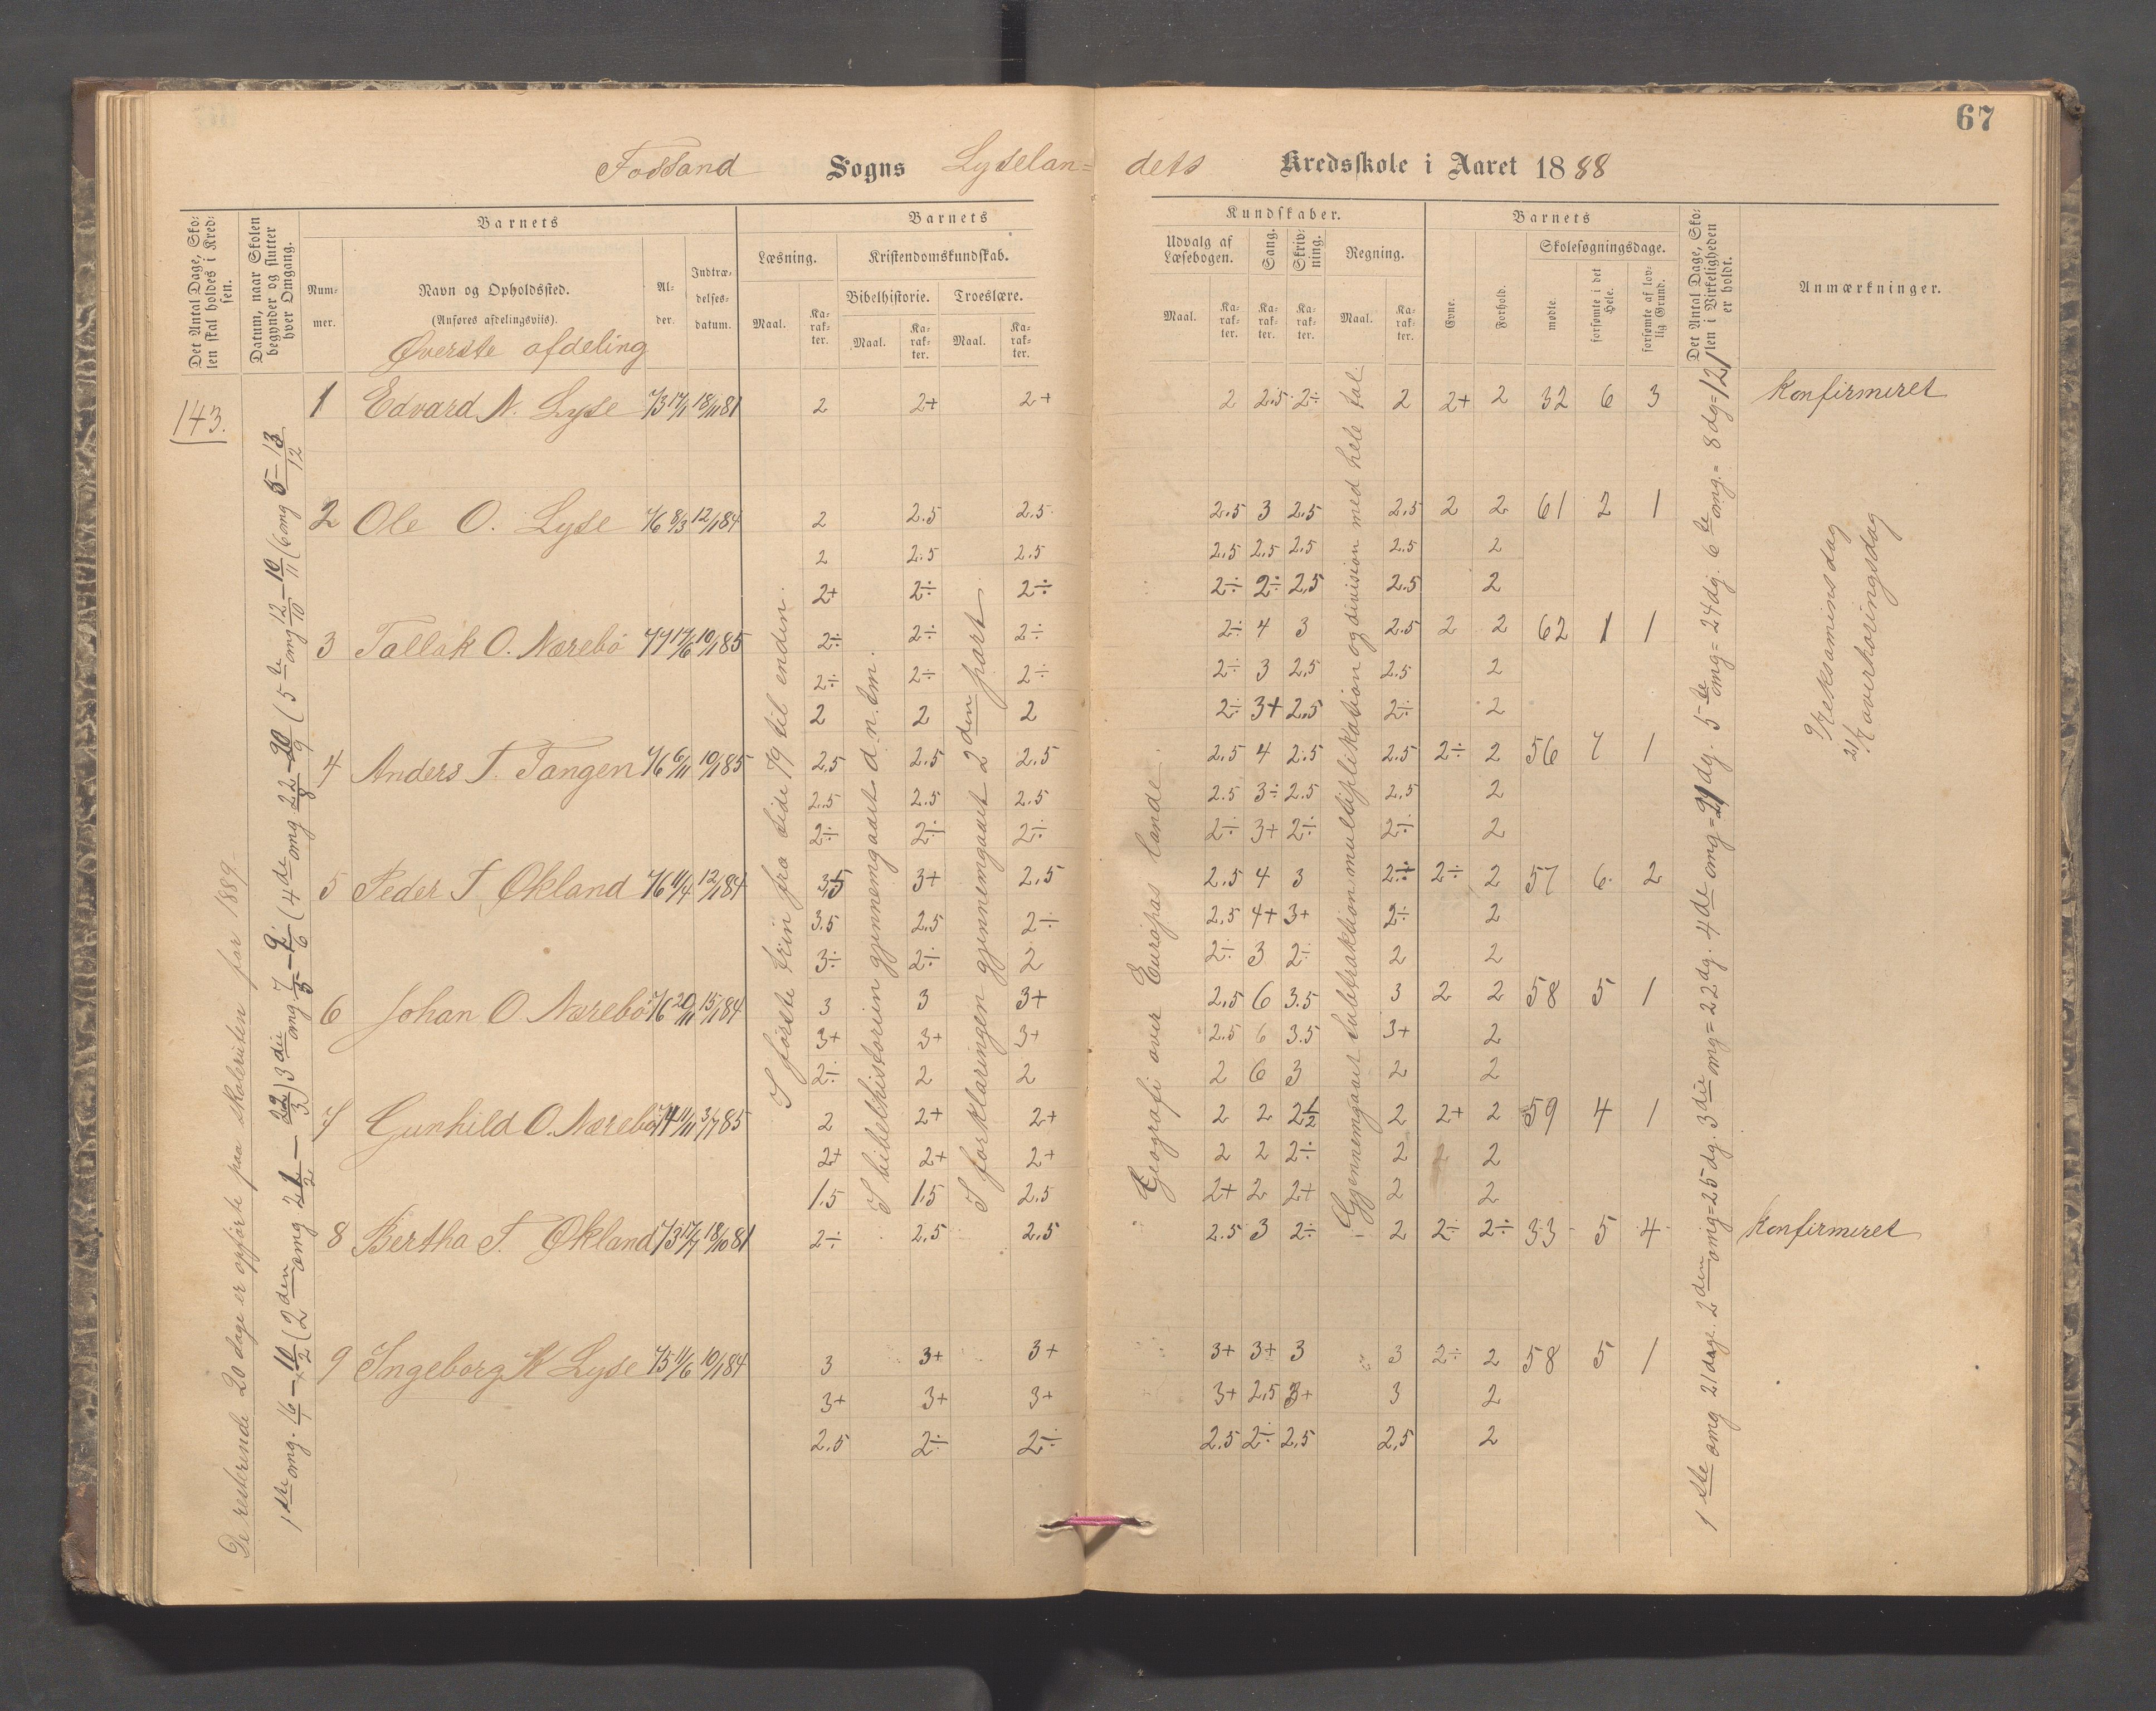 67
Fossand Sogns Lyselan=
dets Kredsskole i Aaret 1888
Det Antal Dage, Sko-
len skal holdes i Kred-
sen.
Datum, naar Skolen
begynder og slutter
hver Omgang.
Barnets
Num-
mer.
Navn og Opholdssted.
(Anføres afdelingsviis).
Øverste afdeling
Al-
der.
Indtræ-
delses-
datum.
Barnets
Læsning.
Kristendomskundskab.
Bibelhistorie.
Troeslære.
Maal.
Ka-
rak-
ter.
Maal.
Ka-
rak-
ter.
Maal.
Ka-
rak-
ter.
Kundskaber.
Udvalg af
Læsebogen.
Sang.
Skriv-
ning.
Regning.
Maal.
Ka-
rak-
ter.
Ka-
rak-
ter.
Ka-
rak-
ter.
Maal.
Ka-
rak-
ter.
Barnets
Evne.
Forhold.
Skolesøgningsdage.
mødte.
forsømte i det
Hele.
forsømte af lov-
lig Grund.
Det Antal Dage, Sko-
len i Virkeligheden
er holdt.
Anmærkninger.
143.
De resterende 20 dage er opførte paa skoleruten for 1889.
1ste omg. 16/1 – 10/2 (2den omg 21/2 – 22/3) 3die omg 7/5 – 9/6 (4de omg 22/8 – 20/9 (5te omg 12/10 – 10/11 (6 omg 5 – 13/12
1 Edvard N. Lyse 73 17/1 18/11 81 2 2+ 2+ 2 2.5 2÷ 2 2+ 2 32 6 3 Konfirmeret
2 Ole O. Lyse 76 8/3 12/1 84 2 2.5 2.5 2.5 3 2.5 2.5 2 2 61 2 1
2 2.5 2.5 2.5 2.5 2.5 2.5 2
2+ 2÷ 2÷ 2÷ 2÷ 2.5 2.5 2
3 Tallak O. Nærebø 77 17/6 10/1 85 2÷ 2÷ 2÷ 2÷ 4 3 2.5 2 2 62 1 1
2÷ 2÷ 2÷ 2÷ 3 2.5 2.5 2
2 2 2 2÷ 3+ 2.5 2÷ 2
4 Anders T. Tangen 76 6/11 10/1 85 2.5 2.5 2.5 2.5 4 2.5 2.5 2÷ 2 56 7 1
2.5 2.5 2.5 2.5 3÷ 2.5 2.5 2
2÷ 2÷ 2÷ 2÷ 3+ 2÷ 2÷ 2
5 Peder T. Økland 76 11/4 12/1 84 3.5 3+ 2.5 2.5 4 3 2÷ 2÷ 2 57 6 2
3.5 2.5 2÷ 2.5 4+ 3+ 2÷ 2
3÷ 2÷ 2 2÷ 3 2÷ 2 2
6 Johan O. Nærebø 76 20/11 15/1 84 3 3 3+ 2.5 6 3.5 3 2 2 58 5 1
3+ 3+ 3+ 2.5 6 3.5 3+ 2
2÷ 2 2 2 6 3 2 2
7 Gunhild O. Nærebø 74 11/11 3/7 85 2 2+ 2+ 2 2 2½ 2 2+ 2 59 4 1
2+ 2+ 2+ 2 2 2÷ 2 2
1.5 1.5 2.5 2+ 2 2+ 2 2
8 Bertha T. Økland 73 17/7 18/10 81 2÷ 2.5 2.5 2.5 3 2÷ 2 2÷ 2÷ 33 5 4 Konfirmeret
9 Ingeborg K Lyse 75 11/6 10/1 84 3 3+ 3+ 3+ 3+ 3 3 2÷ 2 58 5 1
3+ 3+ 3+ 3+ 2.5 3+ 3 2
2.5 2÷ 2÷ 2.5 2÷ 2.5 2.5 2
I første trin fra side 79 til enden.
I bibelhistorien gjennemgaaet d. n. tm.
I forklaringen gjennemgaaet 2den part
Geografi over Europas lande.
Gjennemgaaet subtraktion multiplikation og division med hele tal.
1ste omg 21 dage. 2den omg = 25 dg. 3die omg = 22 dg. 4de omg = 21 dg. 5te omg = 24 dg. 6te omg. = 8 dg = 121
9/7 eksaminsdag
21/7 overhøringsdag